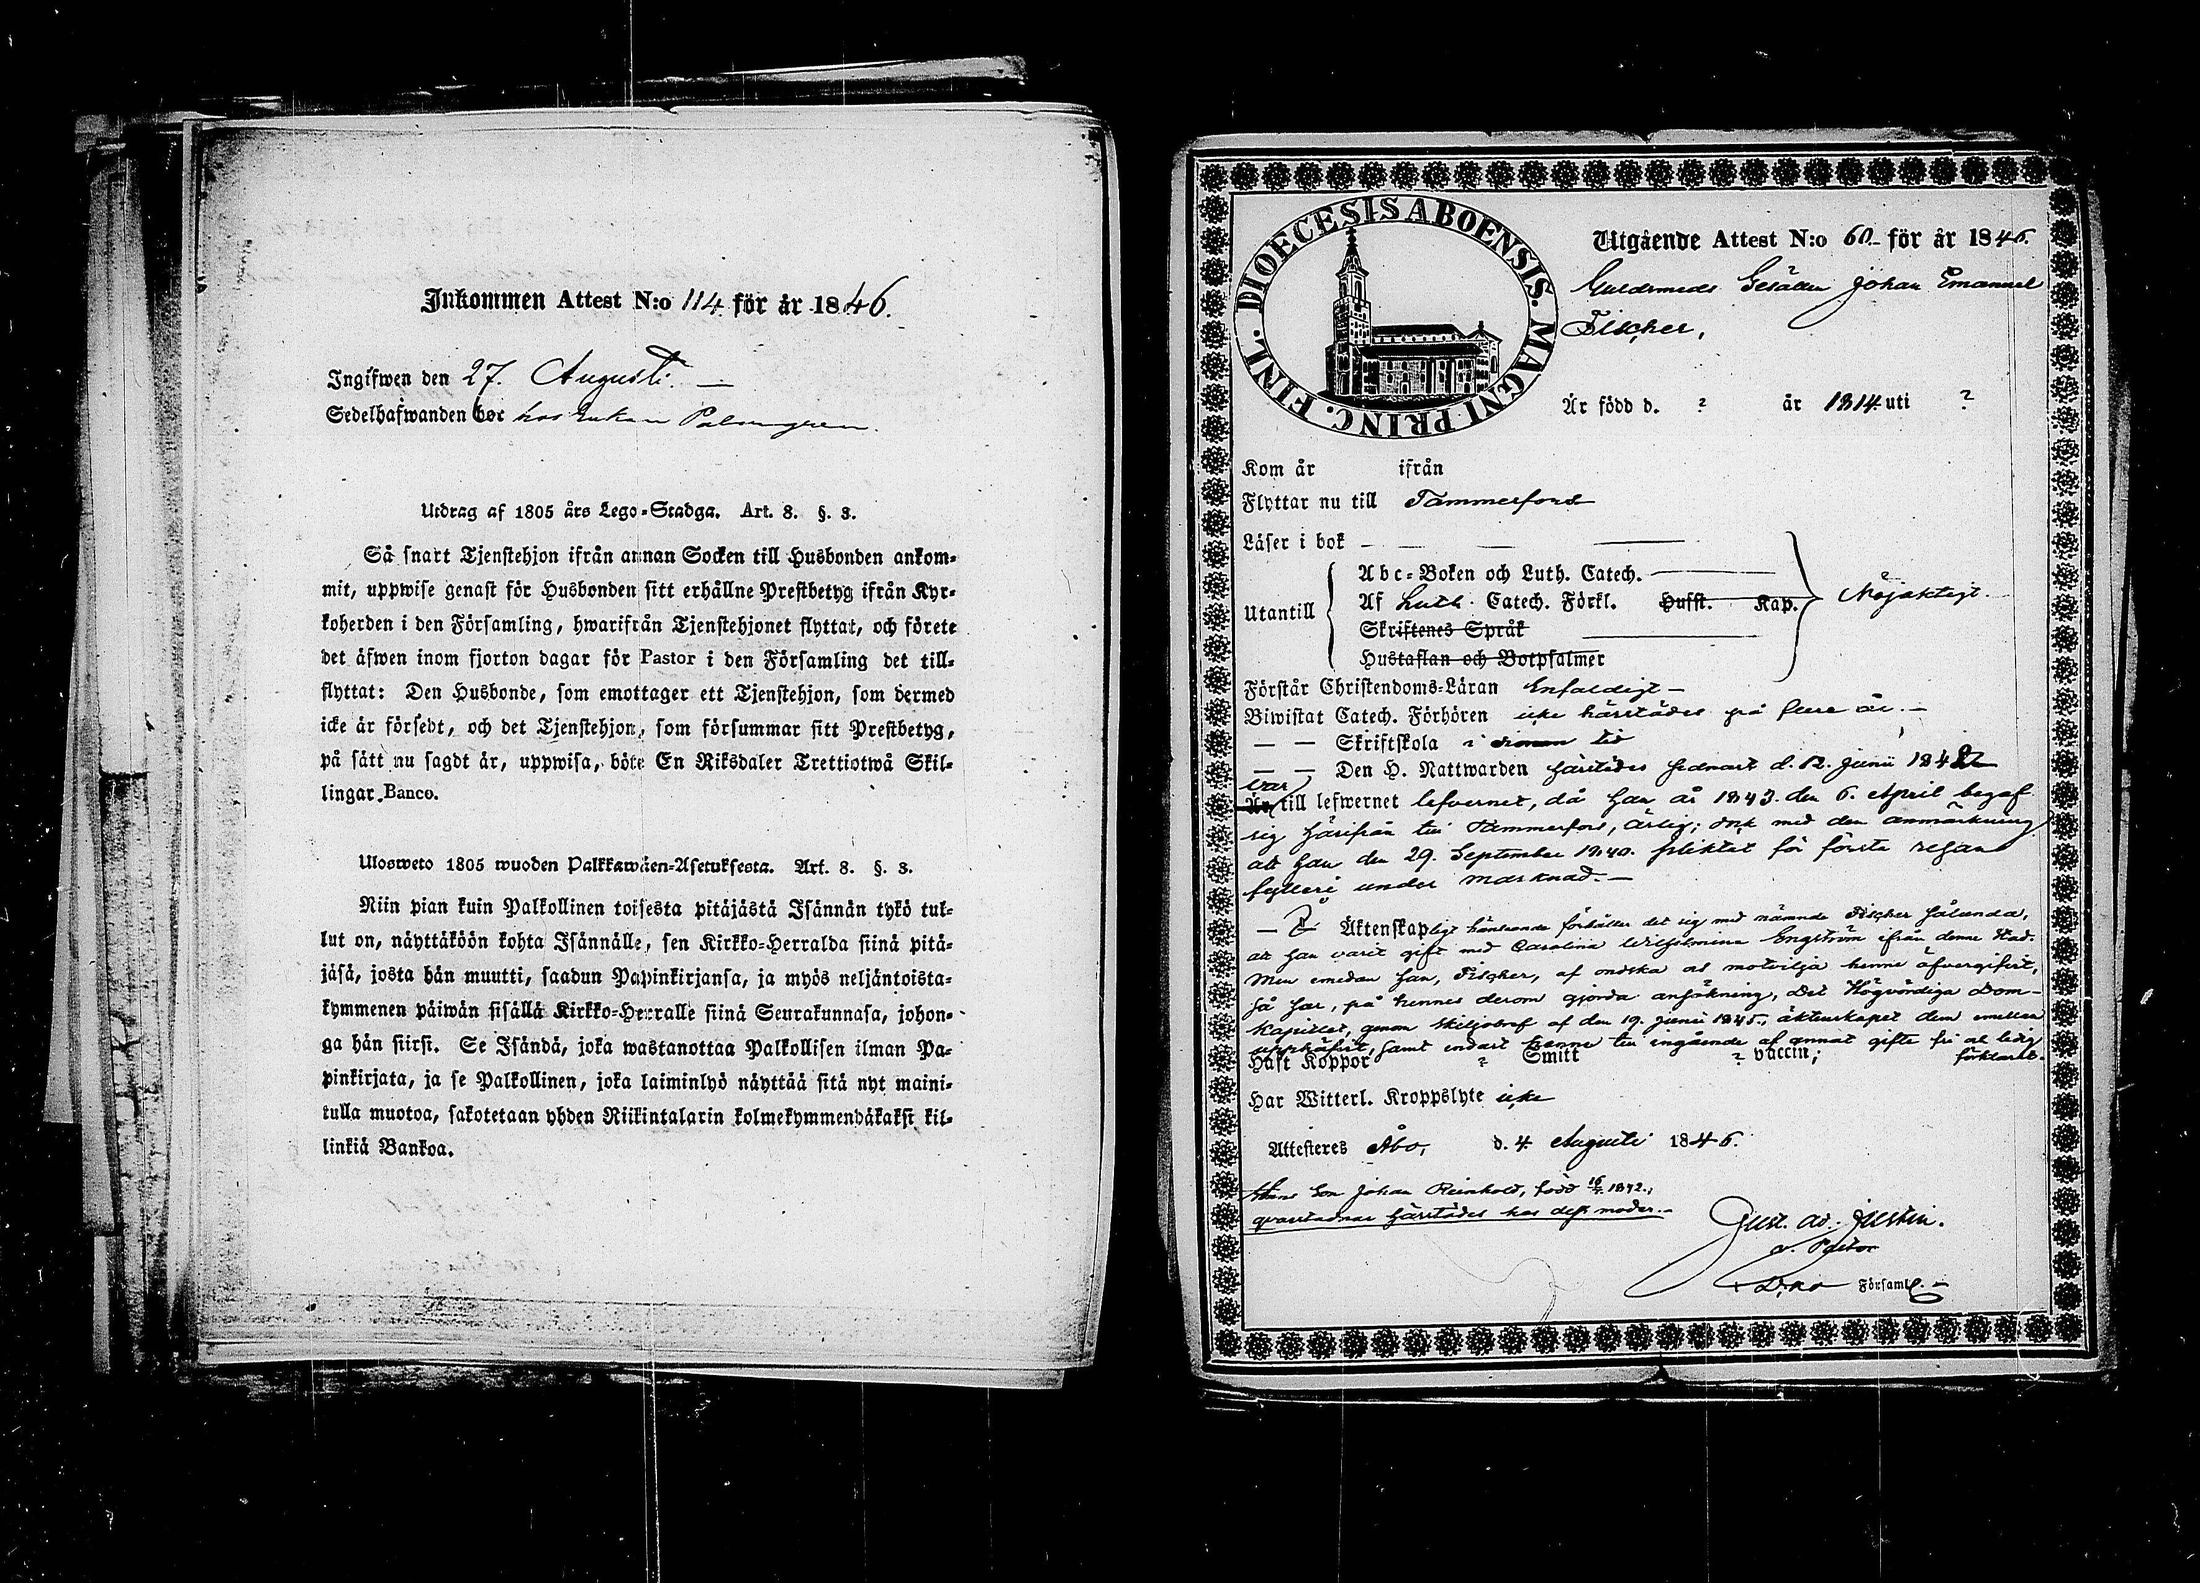 Inkommen Attest N:o 114 för år 1846.
Ingifwen den 27. Augusti. —
Sedelhafwanden bor hos Enkan Palmgren.
Utdrag af 1805 års Lego-Stadga. Art. 8. §. 3.
Så snart Tjenstehjon ifrån annan Socken till Husbonden ankom-
mit, uppwise genast för Husbonden sitt erhållne Prestbetyg ifrån Kyr-
koherden i den Församling, hwarifrån Tjenstehjonet flyttat, och förete
det äfwen inom fjorton dagar för Pastor i den Församling det till-
flyttat: Den Husbonde, som emottager ett Tjenstehjon, som dermed
icke är försedt, och det Tjenstehjon, som försummar sitt Prestbetyg,
på sätt nu sagdt är, uppwisa, böte En Riksdaler Trettiotwå Skil-
lingar Banco.
Ulosweto 1805 wuoden Palkkawäen-Asetuksesta. Art. 8. §. 3.
Niin pian kuin Palkollinen toisesta pitäjästä Isännän tykö tul-
lut on, näyttäköön kohta Isännälle, sen Kirkko-Herralda siinä pitä-
jäsä, josta hän muutti, saadun Papinkirjansa, ja myös neljäntoista-
kymmenen päiwän sisällä Kirkko-Herralle siinä Seurakunnasa, johon-
ga hän siirsi. Se Isändä, joka wastanottaa Palkollisen ilman Pa-
pinkirjata, ja se Palkollinen, joka laiminlyö näyttää sitä nyt maini-
tulla muotoa, sakotetaan yhden Riikintalarin kolmekymmendäkaksi kil-
linkiä Bankoa.
DIOECESIS ABOENSIS. MAGNI PRINC. FINL.
Utgående Attest N:o 60 för år 1846.
Guldsmeds Gesällen Johan Emanuel
Fischer,
Är född d. ? år 1814 uti ?
Kom år ifrån
Flyttar nu till Tammerfors
Läser i bok — — — —
Utantill
Abc-Boken och Luth. Catech. —
Af Luth. Catech. Förkl. Hufst. Kap.
Skriftenes Språk
Hustaflan och Botpsalmer
Nöjaktigt.
Förstår Christendoms-Läran Enfaldigt —
Biwistat Catech. Förhören icke härstädes på flere år. —
— — Skriftskola i sinom tid
— — Den H. Nattwarden härstädes sednast d. 12. Junii 1842
var
Är till lefwernet lefvernet, då han år 1843. den 6. April begaf
sig härifrån till Tammerfors, ärlig; dock med den anmärkning
att han den 29. September 1840. pliktat för första resan
fylleri under marknad. —
— Äktenskapligt hänseende förhåller det sig med nämnde Fischer sålunda,
att han varit gift med Carolina Wilhelmina Engström ifrån denne Stad.
Men emedan han, Fischer, af ondska och motvilja henne öfvergifvit,
så har, på hennes derom gjorda ansökning, Det Högvördiga Dom-
Kapitlet, genom Skiljobref af den 19. Junii 1845., äktenskapet dem emellan
upphäfvit, samt endast henne till ingående af annat gifte fri och ledig
förklarat.
Haft Koppor ? Smitt ? vaccin;
Har Witterl. Kroppslyte icke
Attesteres Åbo, d. 4 Augusti 1846.
Hans Son Johan Reinhold, född 1842.,
qvarstadnar härstädes hos dess moder. —
Gust. Ad. Justin.
v. Pastor
Församl. —